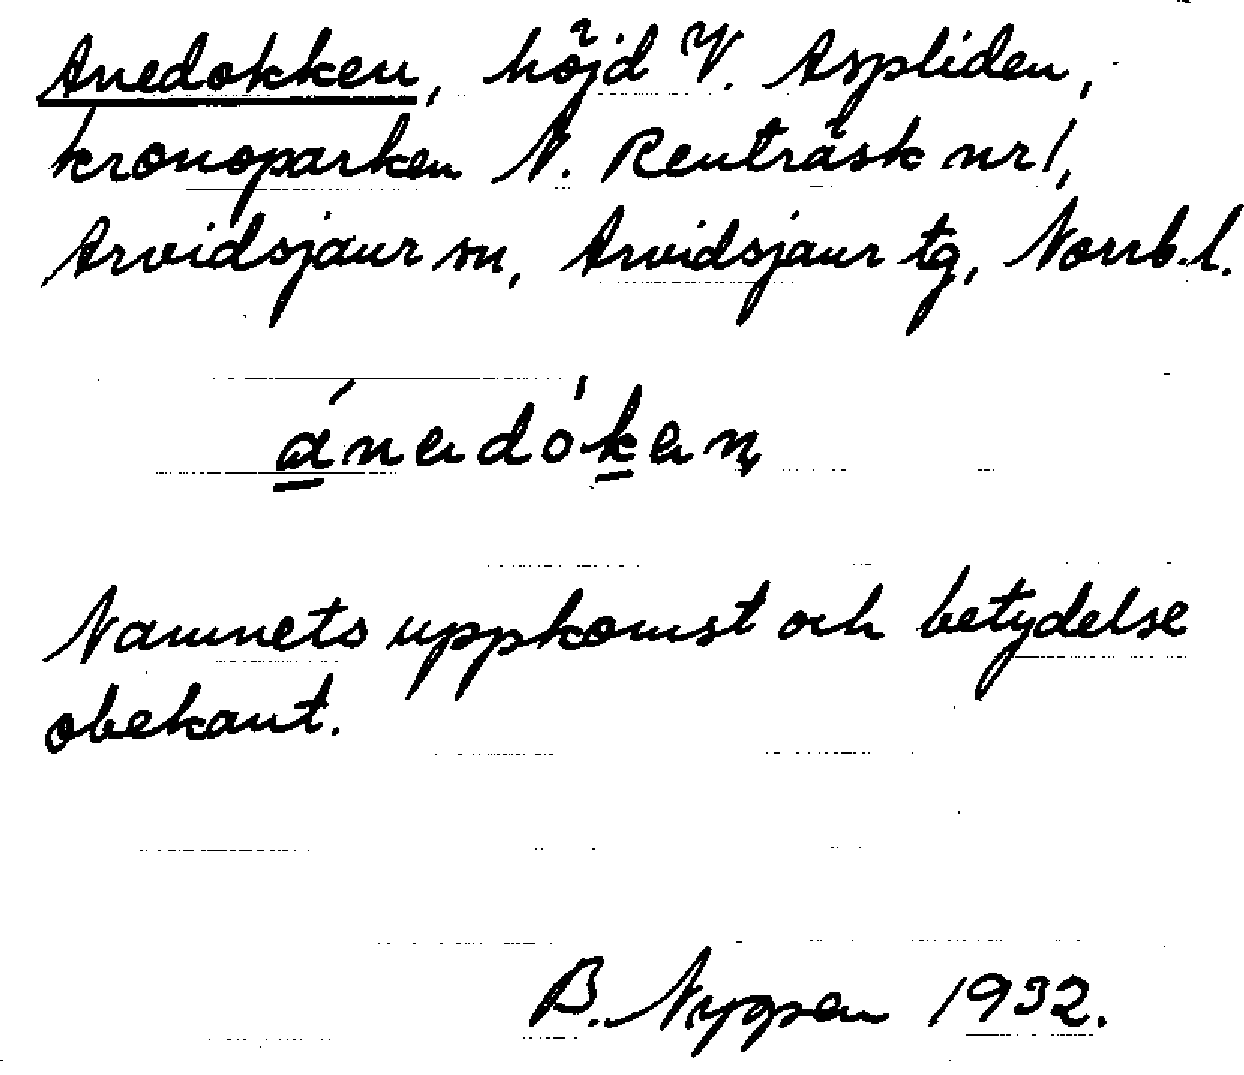 Anedokken, höjd V. Aspliden,
kronoparken N. Renträsk nr 1,
Arvidsjaur sn, Arvidsjaur tg, Norrb. l.
ánadókan
Namnets uppkomst och betydelse
obekant.
B. 1932.